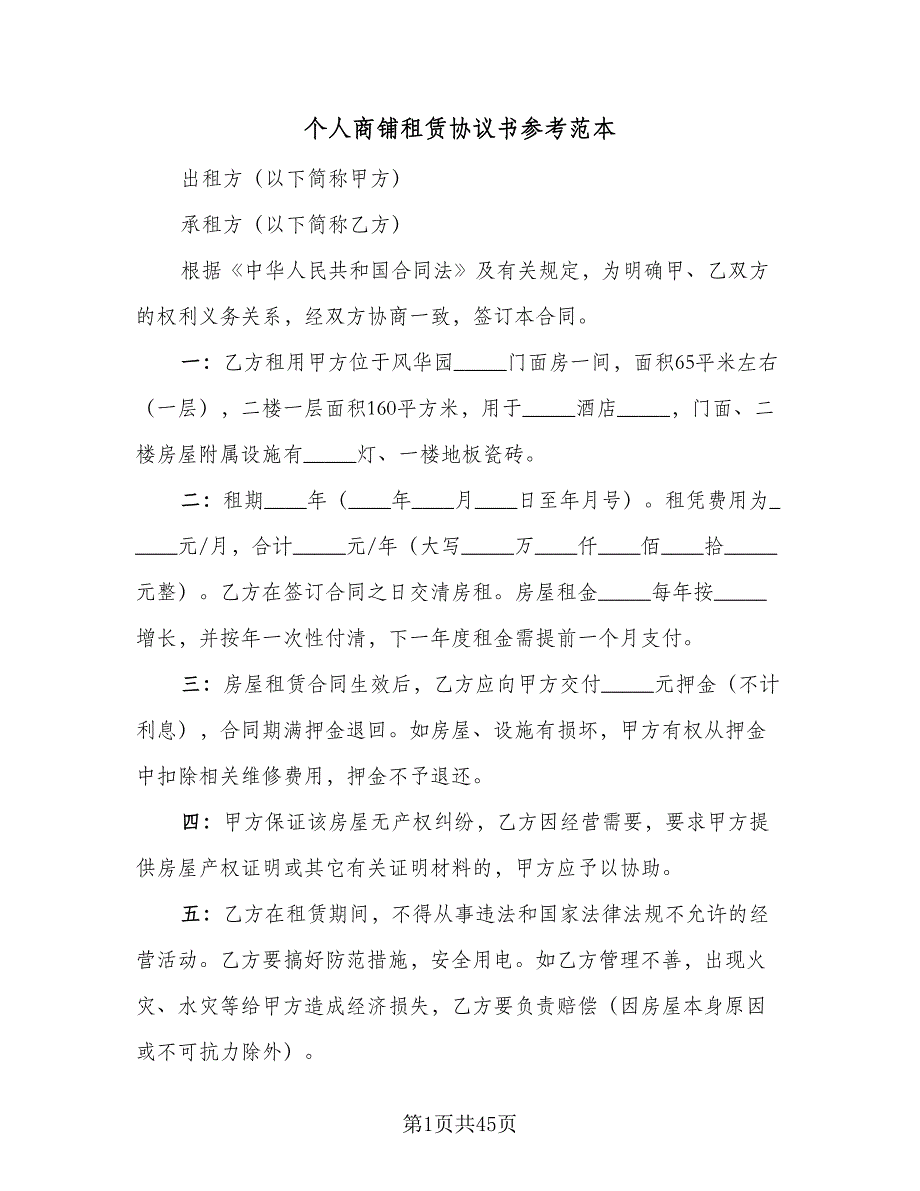 个人商铺租赁协议书参考范本
出租方（以下简称甲方）
承租方（以下简称乙方）
根据《中华人民共和国合同法》及有关规定，为明确甲、乙双方
的权利义务关系，经双方协商一致，签订本合同。
一：乙方租用甲方位于风华园_____门面房一间，面积65平米左右
（一层），二楼一层面积160平方米，用于_____酒店_____，门面、二
楼房屋附属设施有_____灯、一楼地板瓷砖。
二：租期____年（____年____月____日至年月号）。租凭费用为_
____元/月，合计_____元/年（大写_____万____仟____佰____拾_____
元整）。乙方在签订合同之日交清房租。房屋租金_____每年按_____
增长，并按年一次性付清，下一年度租金需提前一个月支付。
三：房屋租赁合同生效后，乙方应向甲方交付_____元押金（不计
利息），合同期满押金退回。如房屋、设施有损坏，甲方有权从押金
中扣除相关维修费用，押金不予退还。
四：甲方保证该房屋无产权纠纷，乙方因经营需要，要求甲方提
供房屋产权证明或其它有关证明材料的，甲方应予以协助。
五：乙方在租赁期间，不得从事违法和国家法律法规不允许的经
营活动。乙方要搞好防范措施，安全用电。如乙方管理不善，出现火
灾、水灾等给甲方造成经济损失，乙方要负责赔偿（因房屋本身原因
或不可抗力除外）。
第1页共45页